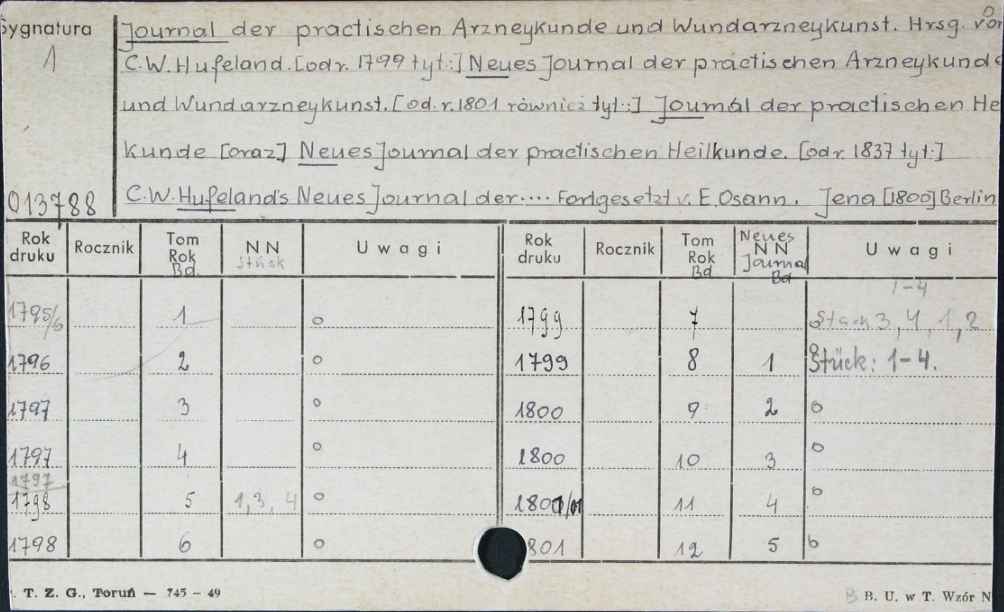 Sygnatura
1
013788
Journal der practischen Arzneykunde und Wundarzneykunst. Hrsg. von
C.W. Hufeland. [od r. 1799 tyt:] Neues Journal der practischen Arzneykunde
und Wundarzneykunst. [od. r. 1801 również tyt:] Journal der practischen He
kunde [oraz] Neues Journal der practischen Heilkunde. [od r 1837 tyt:]
C.W. Hufeland's Neues Journal der.... Fortgesetzt v. E. Osann. Jena [1800] Berlin
Rok druku Rocznik Tom Rok Bd NN Stück Uwagi Rok druku Rocznik Tom Rok Bd Neues NN Journal Bd Uwagi
1-4
1795/6 1 o 1799 7 3, 4, 1, 2
1796 2 o 1799 8 1 Stück: 1-4.
1797 3 o 1800 9 2 o
1797 4 o 1800 10 3 o
1797
1798 5 1, 3, 4 o 11 4 o
1798 6 o 801 12 5 o
T. Z. G., Toruń — 745 - 49
B. U. w T. Wzór N